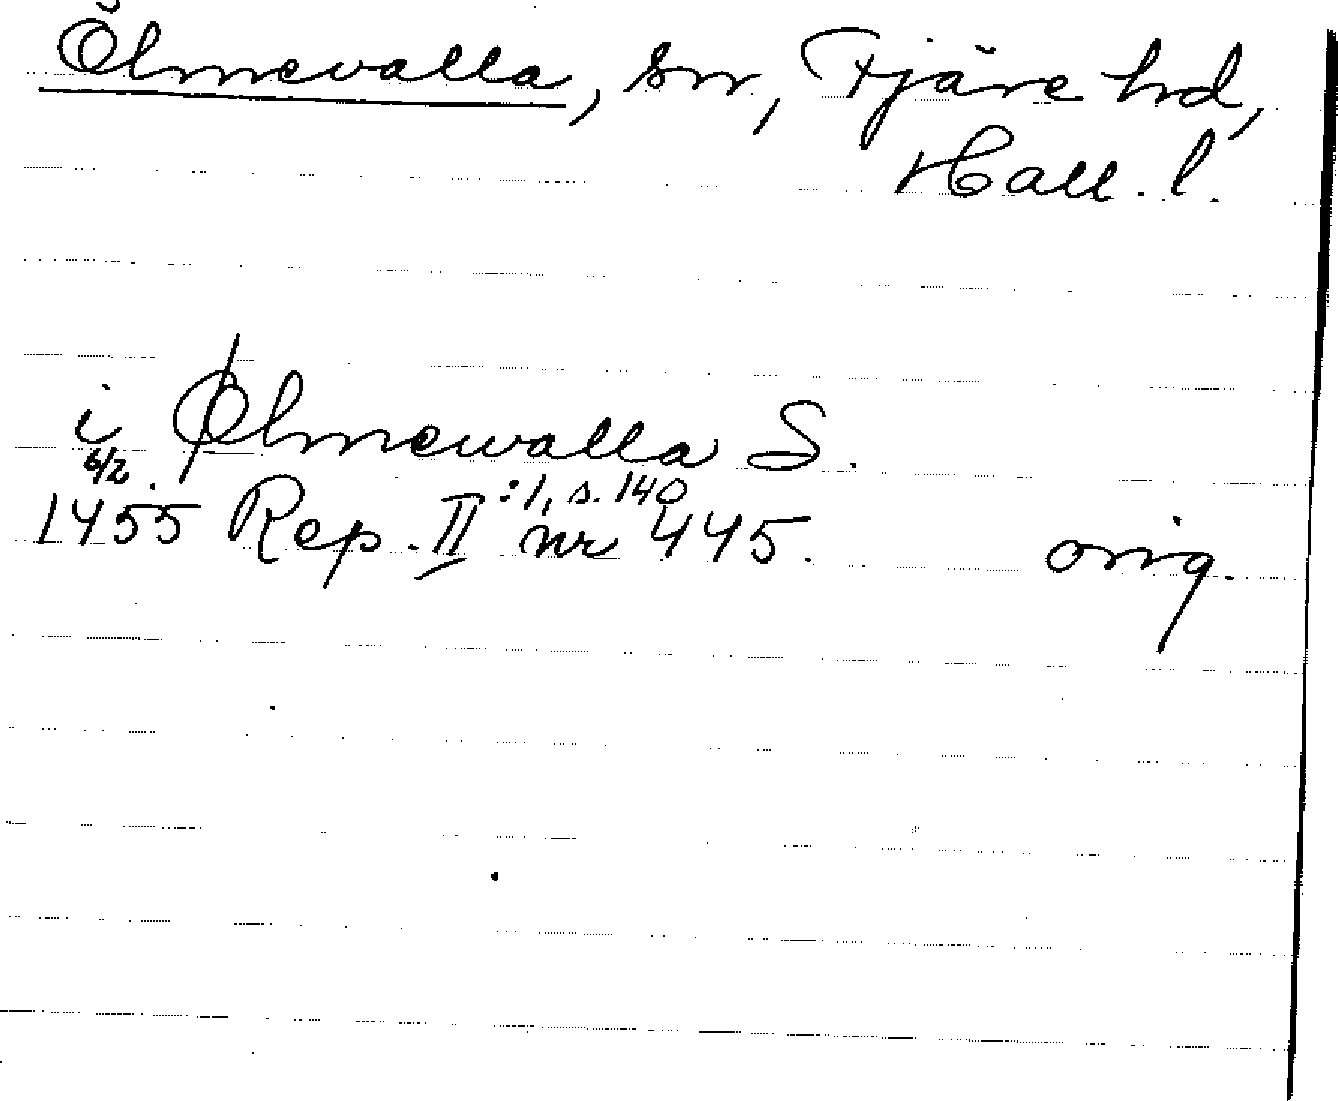 Ölmevalla, sn, Fjäre hd,
Hall. l.
i Ølmewalla S.
6/2 :1, s. 140
1455 Rep. II nr 445. orig.